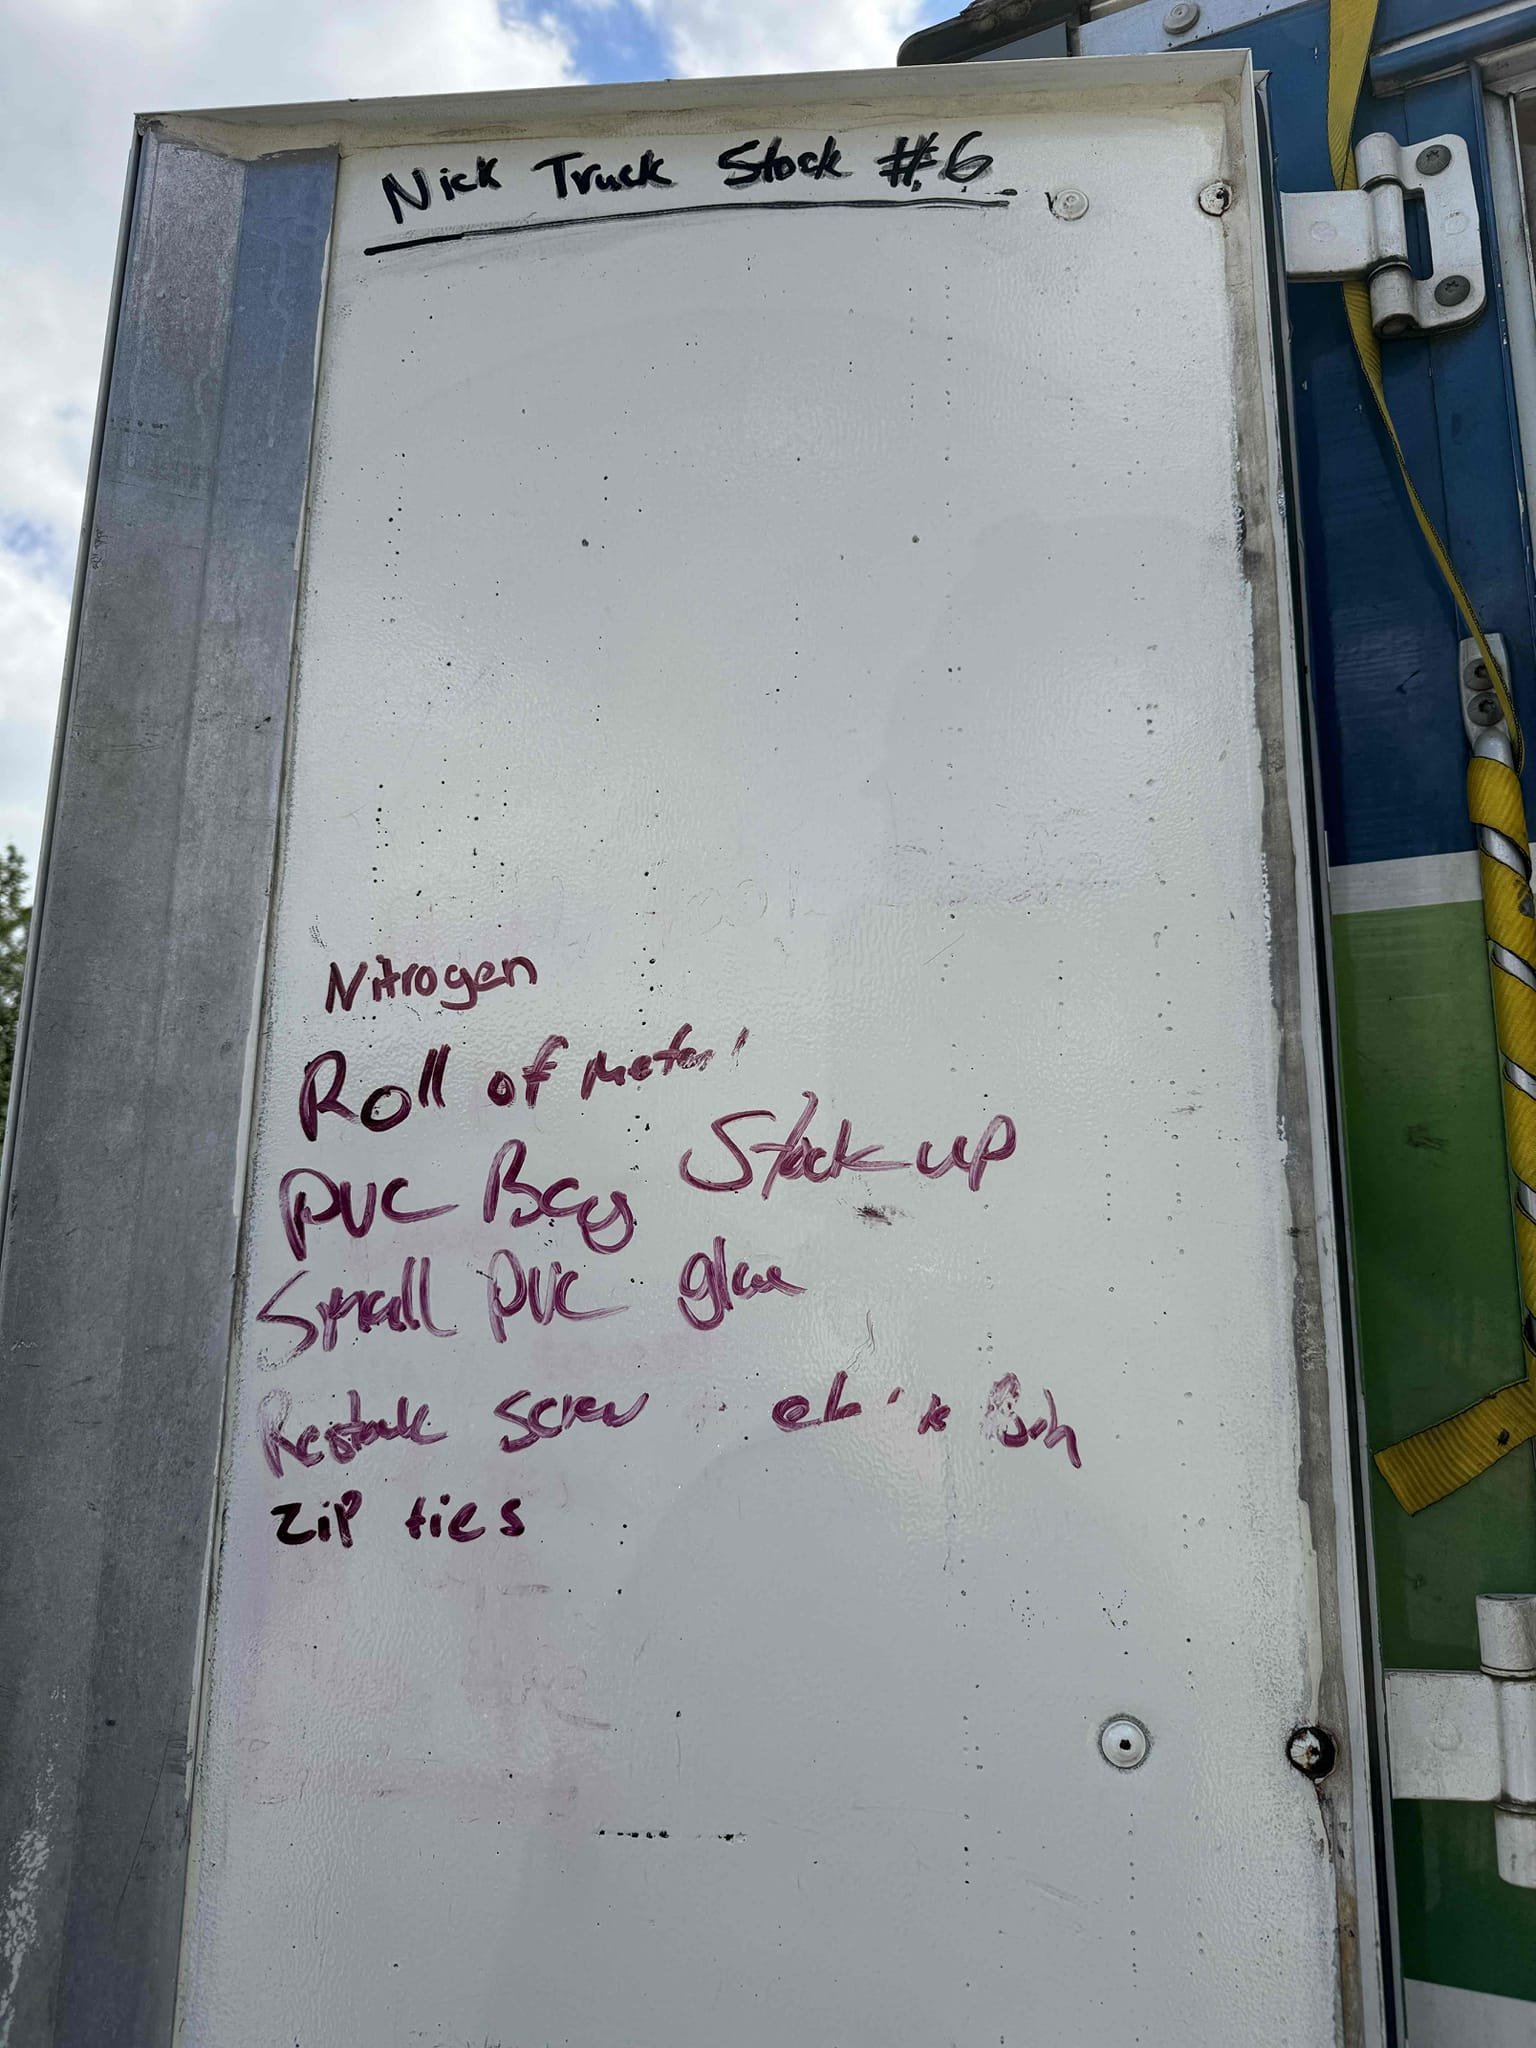 Nick Truck Stock #6
Nitrogen
Roll of
PVC Bag Stock up
Small PVC glue
Restock screw
zip ties